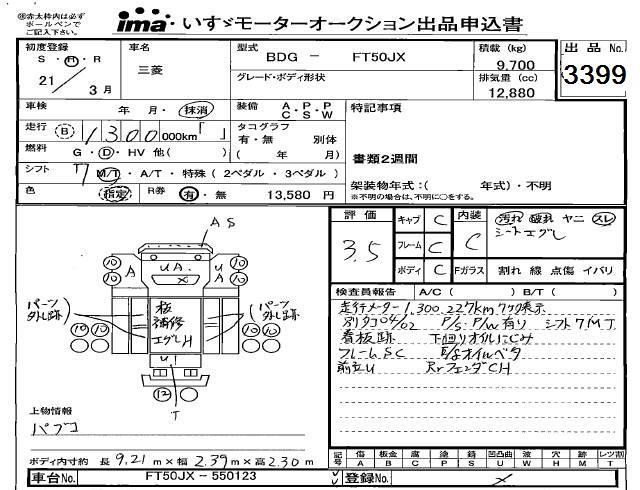 ㊟赤太枠内は必ず
ボールペンで
ご記入下さい。
ima いすゞモーターオークション出品申込書
初度登録
S・H・R
21 3月
車名
三菱
型式
BDG － FT50JX
グレード・ボディ形状
積載 (kg)
9,700
排気量 (cc)
12,880
出品No.
3399
車検 年 月・抹消
装備 A・P・P
C S W
特記事項
走行 B 1300 000km「 」
タコグラフ
有・無 別体
( 年 月)
燃料 G・D・HV 他( )
書類2週間
シフト 7 M/T・A/T・特殊(2ペダル・3ペダル)
架装物年式:( 年式)・不明
※不明の場合は、不明に○をする。
色 指定 R券 有・無 13,580 円
評価
3.5
キャブ C
フレーム C
ボディ C
内装 C
汚れ 破れ ヤニ スレ
シートエグレ
Fガラス 割れ 線 点傷 イバリ
検査員報告 A/C( ) B/T( )
走行メーター1,300,227km
P/S・P/W有り シフト7MT
看板跡 下廻りオイルにじみ
フレームSC
RrフェンダCH
AS
10 10 10 10
A UA. U A
X
パーツ
外し跡
板
補修
エグレH
パーツ
外し跡
10 10
U1
12
T
上物情報
パブコ
ボディ内寸約 長 9.21 m×幅 2.39 m×高 2.30 m
記号 傷 A 板金 B 腐 C 塗 P 錆 S 凹凸曲 U 波 W 穴 H 跡 M レツ割 T
車台No. FT50JX－550123
登録No.